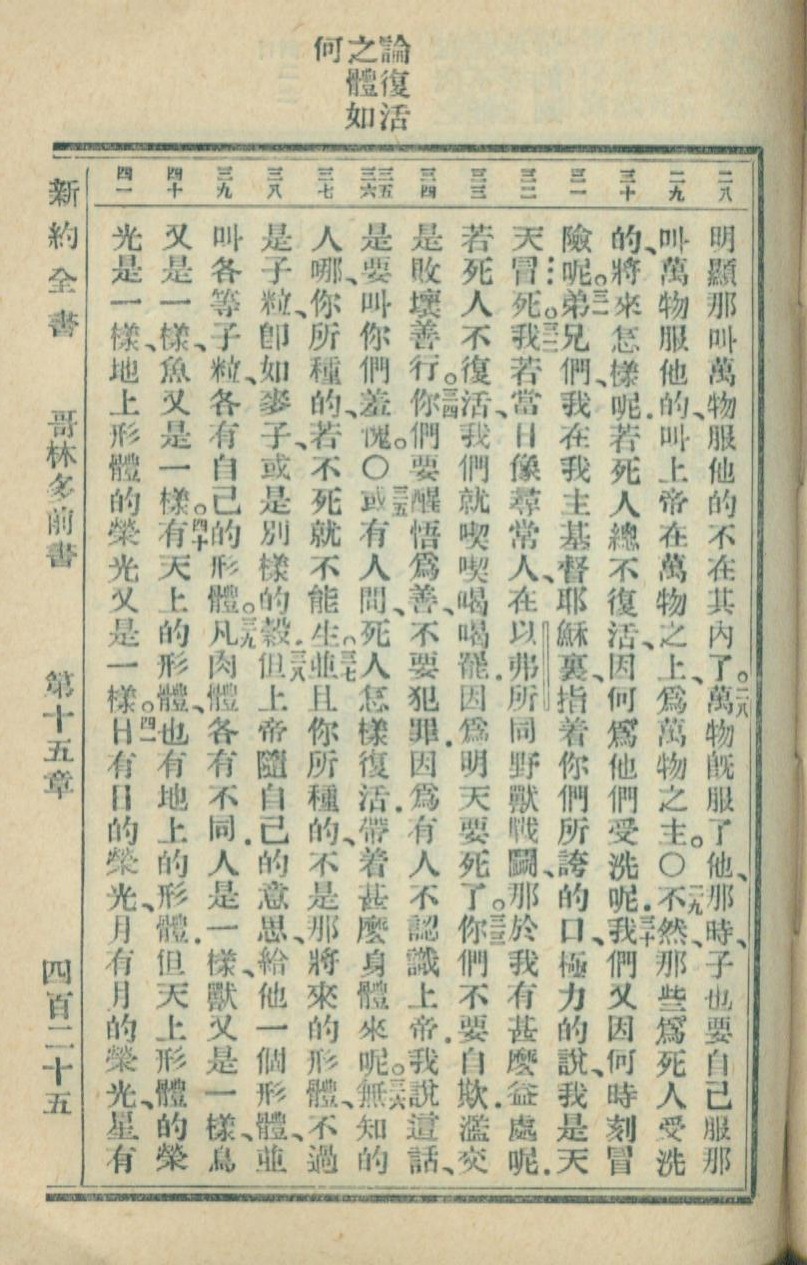 論復活
之體如
何
二八
二九
三十
三一
三二
三三
三四
三五
三六
三七
三八
三九
四十
四一
明顯那叫萬物服他的不在其內了。二八萬物既服了他、那時、子也要自己服那
叫萬物服他的、叫上帝在萬物之上、爲萬物之主。〇二九不然、那些爲死人受洗
的、將來怎樣呢.若死人總不復活、因何爲他們受洗呢.三十我們又因何時刻冒
險呢。三一弟兄們、我在我主基督耶穌裏、指着你們所誇的口、極力的說、我是天
天冒死。三二我若當日像尋常人、在以弗所同野獸戰鬭、那於我有甚麼益處呢.
若死人不復活、我們就喫喫喝喝罷.因爲明天要死了。三三你們不要自欺.濫交
是敗壞善行。三四你們要醒悟爲善、不要犯罪.因爲有人不認識上帝.我說這話、
是要叫你們羞愧。〇三五或有人問、死人怎樣復活.帶着甚麼身體來呢。三六無知的
人哪、你所種的、若不死就不能生。三七並且你所種的、不是那將來的形體、不過
是子粒、卽如麥子、或是別樣的穀.三八但上帝隨自己的意思、給他一個形體、並
叫各等子粒、各有自己的形體。三九凡肉體各有不同.人是一樣、獸又是一樣、鳥
又是一樣、魚又是一樣。四十有天上的形體、也有地上的形體.但天上形體的榮
光是一樣、地上形體的榮光又是一樣。四一日有日的榮光、月有月的榮光、星有
新約全書
哥林多前書
第十五章
四百二十五